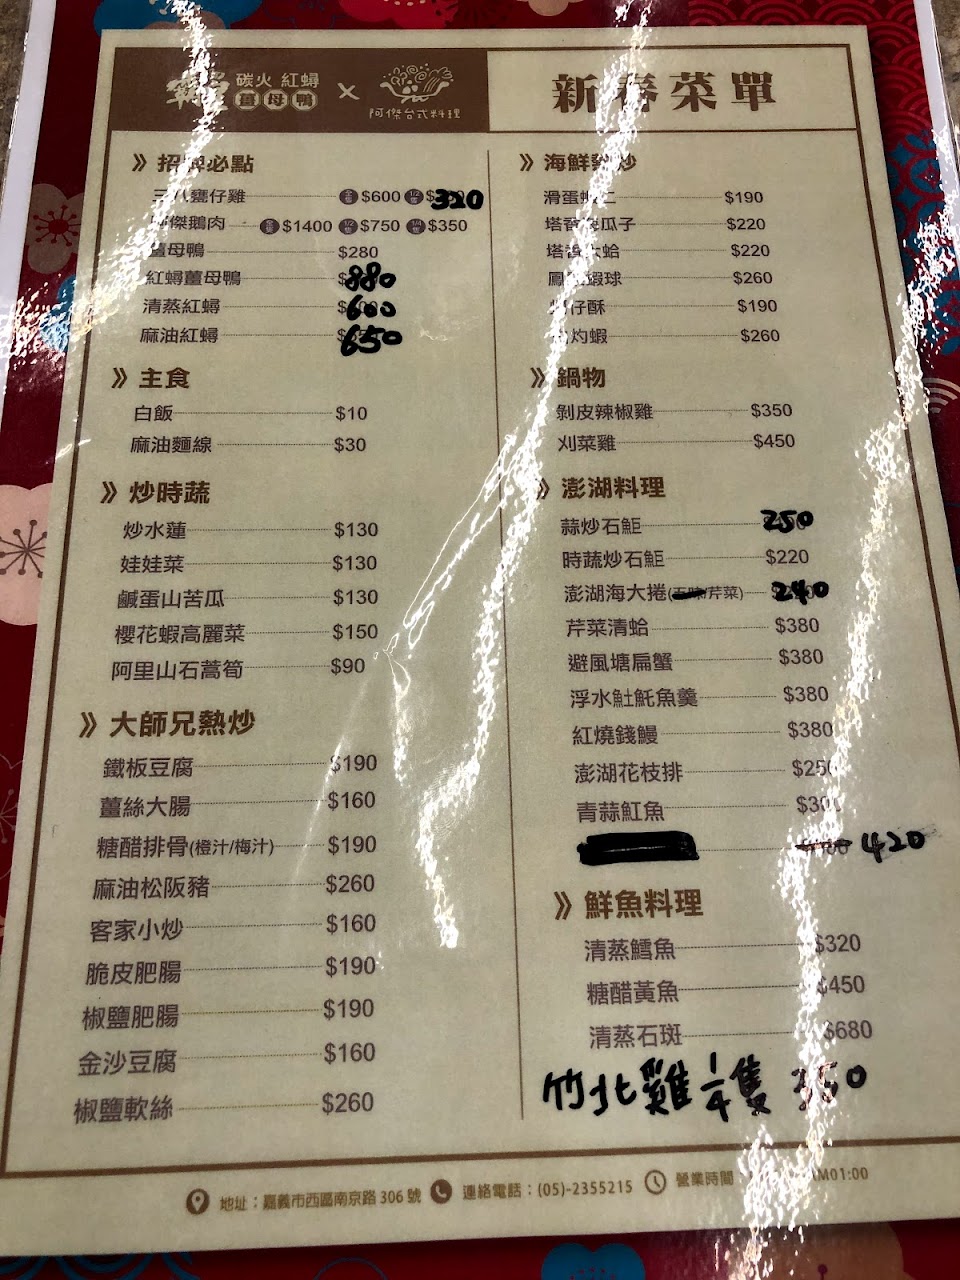 霸 碳火 紅蟳
薑母鴨
×
阿傑台式料理
新春菜單
》招牌必點
三八甕仔雞 $600 320
阿傑鵝肉 $1400 $750 $350
薑母鴨 $280
紅蟳薑母鴨 880
清蒸紅蟳 600
麻油紅蟳 650
》主食
白飯 $10
麻油麵線 $30
》炒時蔬
炒水蓮 $130
娃娃菜 $130
鹹蛋山苦瓜 $130
櫻花蝦高麗菜 $150
阿里山石蒿筍 $90
》大師兄熱炒
鐵板豆腐 $190
薑絲大腸 $160
糖醋排骨(橙汁/梅汁) $190
麻油松阪豬 $260
客家小炒 $160
脆皮肥腸 $190
椒鹽肥腸 $190
金沙豆腐 $160
椒鹽軟絲 $260
》海鮮熱炒
滑蛋蝦仁 $190
塔香 瓜子 $220
塔香大蛤 $220
鳳 蝦球 $260
仔酥 $190
灼蝦 $260
》鍋物
剝皮辣椒雞 $350
刈菜雞 $450
》澎湖料理
蒜炒石鮔 250
時蔬炒石鮔 $220
澎湖海大捲(五味/芹菜) 240
芹菜清蛤 $380
避風塘扁蟹 $380
浮水魠魠魚羹 $380
紅燒錢鰻 $380
澎湖花枝排 $250
青蒜魟魚 $300
420
》鮮魚料理
清蒸鱈魚 $320
糖醋黃魚 $450
清蒸石斑 $680
竹北雞 1/4隻 350
地址：嘉義市西區南京路306號 連絡電話：(05)-2355215 營業時間 AM01:00